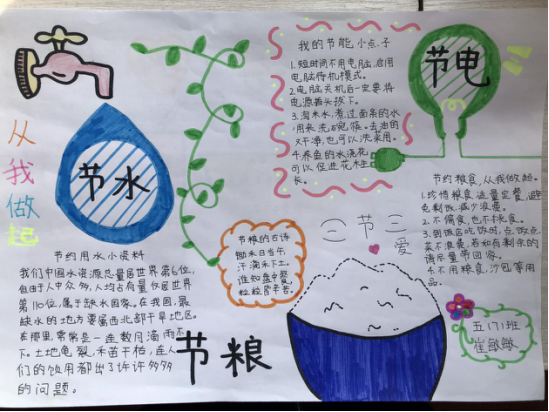 从
我
做
起
节水
节约用水小资料
我们中国水资源总量居世界第6位,
但由于人口众多,人均占有量居世界
第110位,属于缺水国家。在我国,最
缺水的地方要属西北部干旱地区。
在那里,常常是一连数月滴雨不
下。土地龟裂,禾苗干枯,连人
们的饮用都出了许许多多
的问题。
节粮的古诗
锄禾日当午,
汗滴禾下土。
谁知盘中餐,
粒粒皆辛苦。
节粮
我的节能小点子
1.短时间不用电脑,启用
电脑待机模式。
2.电脑关机后一定要将
电源插头拔下。
3.淘米水,煮过面条的水,
用来洗碗筷。去油的
又干净,也可以洗菜用。
4.养鱼的水浇花,
可以促进花木生
长。
节电
三节三
爱
节约粮食,从我做起。
1.珍惜粮食,适量定餐,避
免剩饭,减少浪费。
2.不偏食,也不挑食。
3.到饭店吃饭时,点饭点
菜不浪费,若如有剩余的
请尽量带回家。
4.不用粮食,沙包等用
品。
五(7)班
崔敏敏